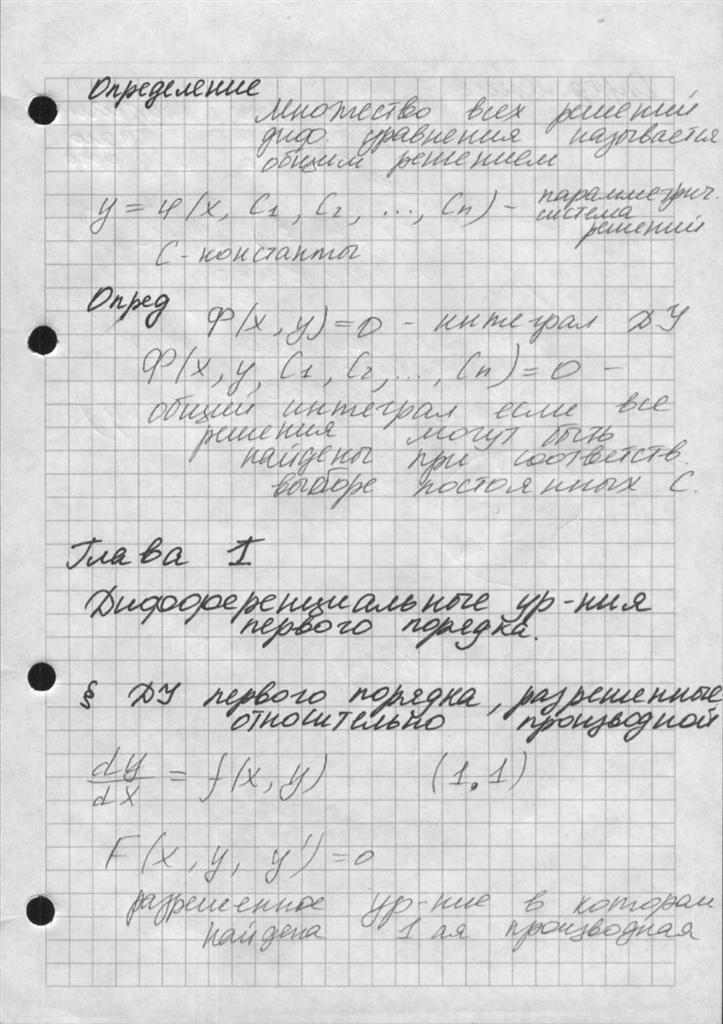 Определение
Множество всех решений
диф. уравнения называется
общим решением
y = φ(x, C₁, C₂, ..., Cn) - параметрич.
система
решений
C - константы
Опред
Φ(x, y) = 0 - интеграл ДУ
Φ(x, y, C₁, C₂, ..., Cn) = 0 -
общий интеграл если все
решения могут быть
найдены при соответств.
выборе постоянных C.
Глава I
Дифференциальные ур-ния
первого порядка.
§ ДУ первого порядка, разрешенные
относительно производной
dy/dx = f(x, y) (1.1)
F(x, y, y') = 0
разрешенное ур-ние в котором
найдена 1 ая производная